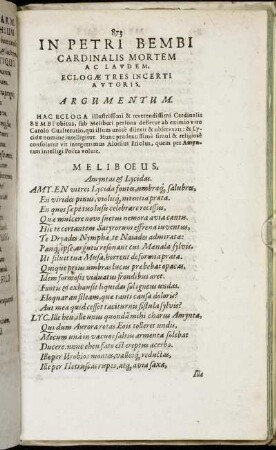 873
IN PETRI BEMBI
CARDINALIS MORTEM
AC LAVDEM,
ECLOGÆ TRES INCERTI
AVTORIS,
ARGVMENTVM.
HAC ECLOGA illustrissimi & reuerendissimi Cardinalis
BEMBI obitus, sub Melibœi persona defletur ab eximio viro
Carolo Gualteruzio, qui illum unicè dilexit & obseruauit: & Ly-
cidæ nomine intelligitur. Hunc prudentissimo simul & religioso
consolatur vir integerrimus Aloisius Priolus, quem per Amyn-
tam intelligi Poëta voluit.
MELIBOEVS,
Amyntas & Lycidas.
AMY. EN vitrei Lycida fontes, umbræq́; salubres,
En virides pinus, violisq́; intextaprata.
En quos sæpe tuo iussu celebrare recessus,
Quæ mulcere nouo suetus nemora auia cantu:
Hic te certantem Satyrorum effræna iuuentus,
Te Dryades Nymphæ, te Naiades admiratæ:
Panq́; ipse arguti resonant cui Mænala syluis.
Ut siluit tua Musa, horrent deformia prata.
Quiqueprius umbras lucus præbebat opacas,
Idem formosis viduatus frondibus aret.
Fontis & exhausit liquidas soliginus undas.
Eloquar an sileam, quæ tanti causa doloris?
Aut mea quid cesset taciturnis fistula syluis?
LYC. Ille heu, ille meus quondam mihi charus Amynta,
Qui dum Aurora rotas Eois tolleret undis,
Mecum unà in vacuos saltus armenta solebat
Ducere: nunc eheu fato est ereptus acerbo.
Illeper Vmbros montes, valleisq́; reductas,
Illeper Hetruscas rupes, atq́; auia saxa,
Ille